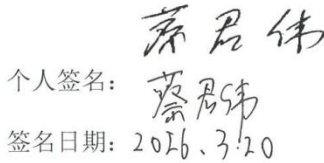 蔡君伟
个人签名：蔡君伟
签名日期：2026.3.20